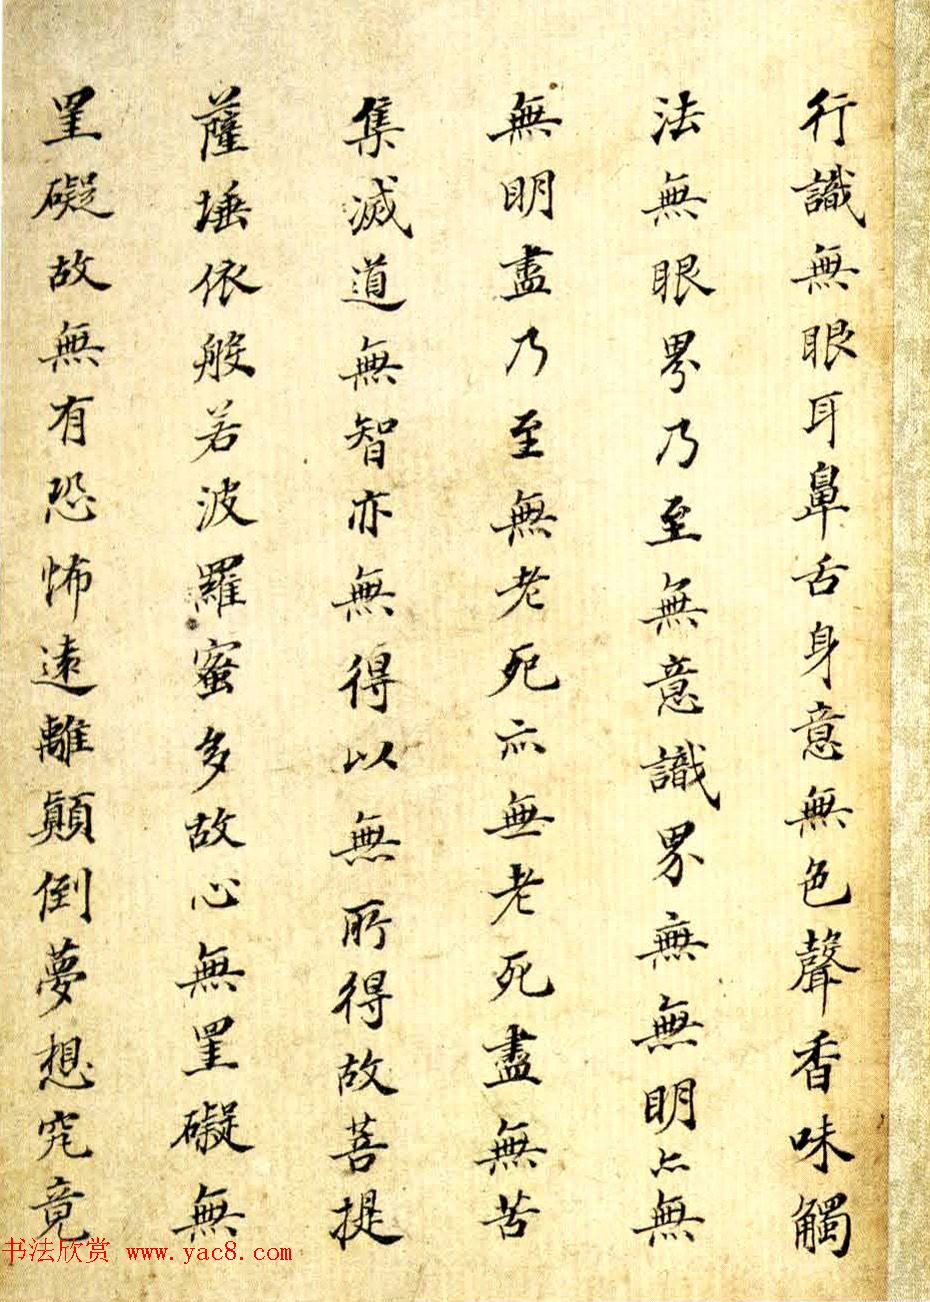 行識無眼耳鼻舌身意無色聲香味觸
法無眼界乃至無意識界無無明亦無
無明盡乃至無老死亦無老死盡無苦
集滅道無智亦無得以無所得故菩提
薩埵依般若波羅蜜多故心無罣礙無
罣礙故無有恐怖遠離顛倒夢想究竟
书法欣赏 www.yac8.com